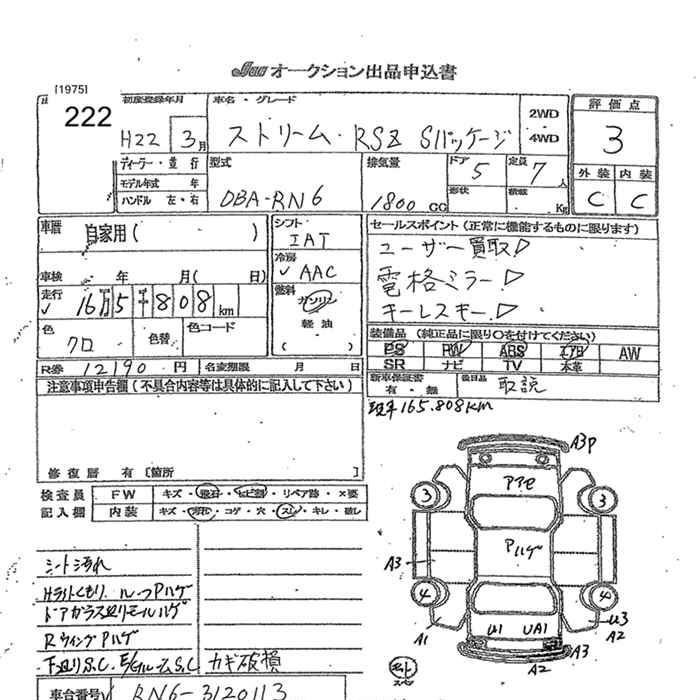 Jaa オークション出品申込書
[1975]
222
初度登録年月
H22 3月
車名・グレード
ストリーム・RSZ Sパッケージ
2WD
4WD
評価点
3
外装 内装
C C
ディーラー・並行
モデル年式 年
ハンドル 左・右
型式
DBA-RN6
排気量
1800 CC
ドア 5
形状
定員 7 人
積載 Kg
車歴
自家用( )
車検 年 月( 日)
走行
16万5千808km
色
クロ
色替
色コード
シフト
IAT
冷房
AAC
燃料
ガソリン
軽油
( )
セールスポイント(正常に機能するものに限ります)
ユーザー買取!
電格ミラー!
キーレスキー!
装備品(純正品に限り○を付けてください)
PS PW ABS エアB AW
SR ナビ TV 本革
新車保証書
有・無
後日品
取説
R券 12190円
名変期限 月 日
注意事項申告欄(不具合内容等は具体的に記入して下さい)
修復歴 有[箇所 ]
検査員
記入欄
FW キズ・飛石・ヒビ割・リペア跡・X要
内装 キズ・汚れ・コゲ・穴・スレ・キレ・破し
165.808km
シート汚れ
Hライトくもり ルーフPハゲ
ドアガラス廻りモールハゲ
RウィングPハゲ
下廻りS.C E/GルームS.C カギ破損
車台番号 RN6-3120113
A3P
3
3
Pハゲ
A3
4
4
A1
U1
UA1
U3
A2
A3
A2